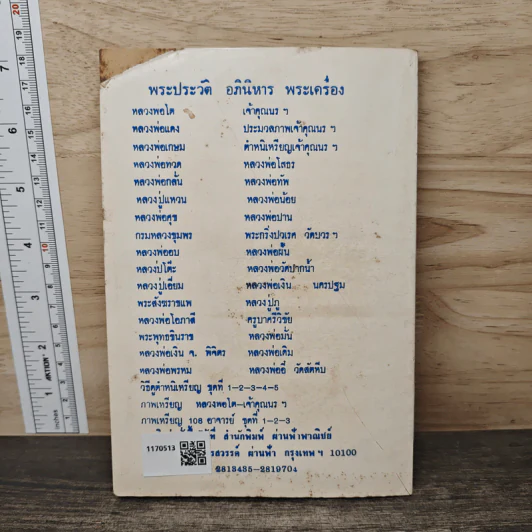 พระประวัติ อภินิหาร พระเครื่อง
หลวงพ่อโต เจ้าคุณนร ฯ
หลวงพ่อแดง ประมวลภาพเจ้าคุณนร ฯ
หลวงพ่อเกษม ตำหนิเหรียญเจ้าคุณนร ฯ
หลวงพ่อทวด หลวงพ่อโสธร
หลวงพ่อกลั่น หลวงพ่อทัพ
หลวงปู่แหวน หลวงพ่อน้อย
หลวงพ่อศุข หลวงพ่อปาน
กรมหลวงชุมพร พระกริ่งปวเรศ วัดบวร ฯ
หลวงพ่ออบ หลวงพ่อฝั้น
หลวงปู่โต๊ะ หลวงพ่อวัดปากน้ำ
หลวงปู่เอี่ยม หลวงพ่อเงิน นครปฐม
พระสังฆราชแพ หลวงปู่ภู
หลวงพ่อโอภาสี ครูบาศรีวิชัย
พระพุทธชินราช หลวงพ่อมั่น
หลวงพ่อเงิน จ. พิจิตร หลวงพ่อเดิม
หลวงพ่อพรหม หลวงพ่ออี๋ วัดสัตหีบ
วิธีดูตำหนิเหรียญ ชุดที่ 1-2-3-4-5
ภาพเหรียญ หลวงพ่อโต-เจ้าคุณนร ฯ
ภาพเหรียญ 108 อาจารย์ ชุดที่ 1-2-3
สำนักพิมพ์ ผ่านฟ้าพาณิชย์
รสวรรค์ ผ่านฟ้า กรุงเทพ ฯ 10100
2813435-2819704
1170513
ACTION
1 2 3 4 5 6 7
10 20